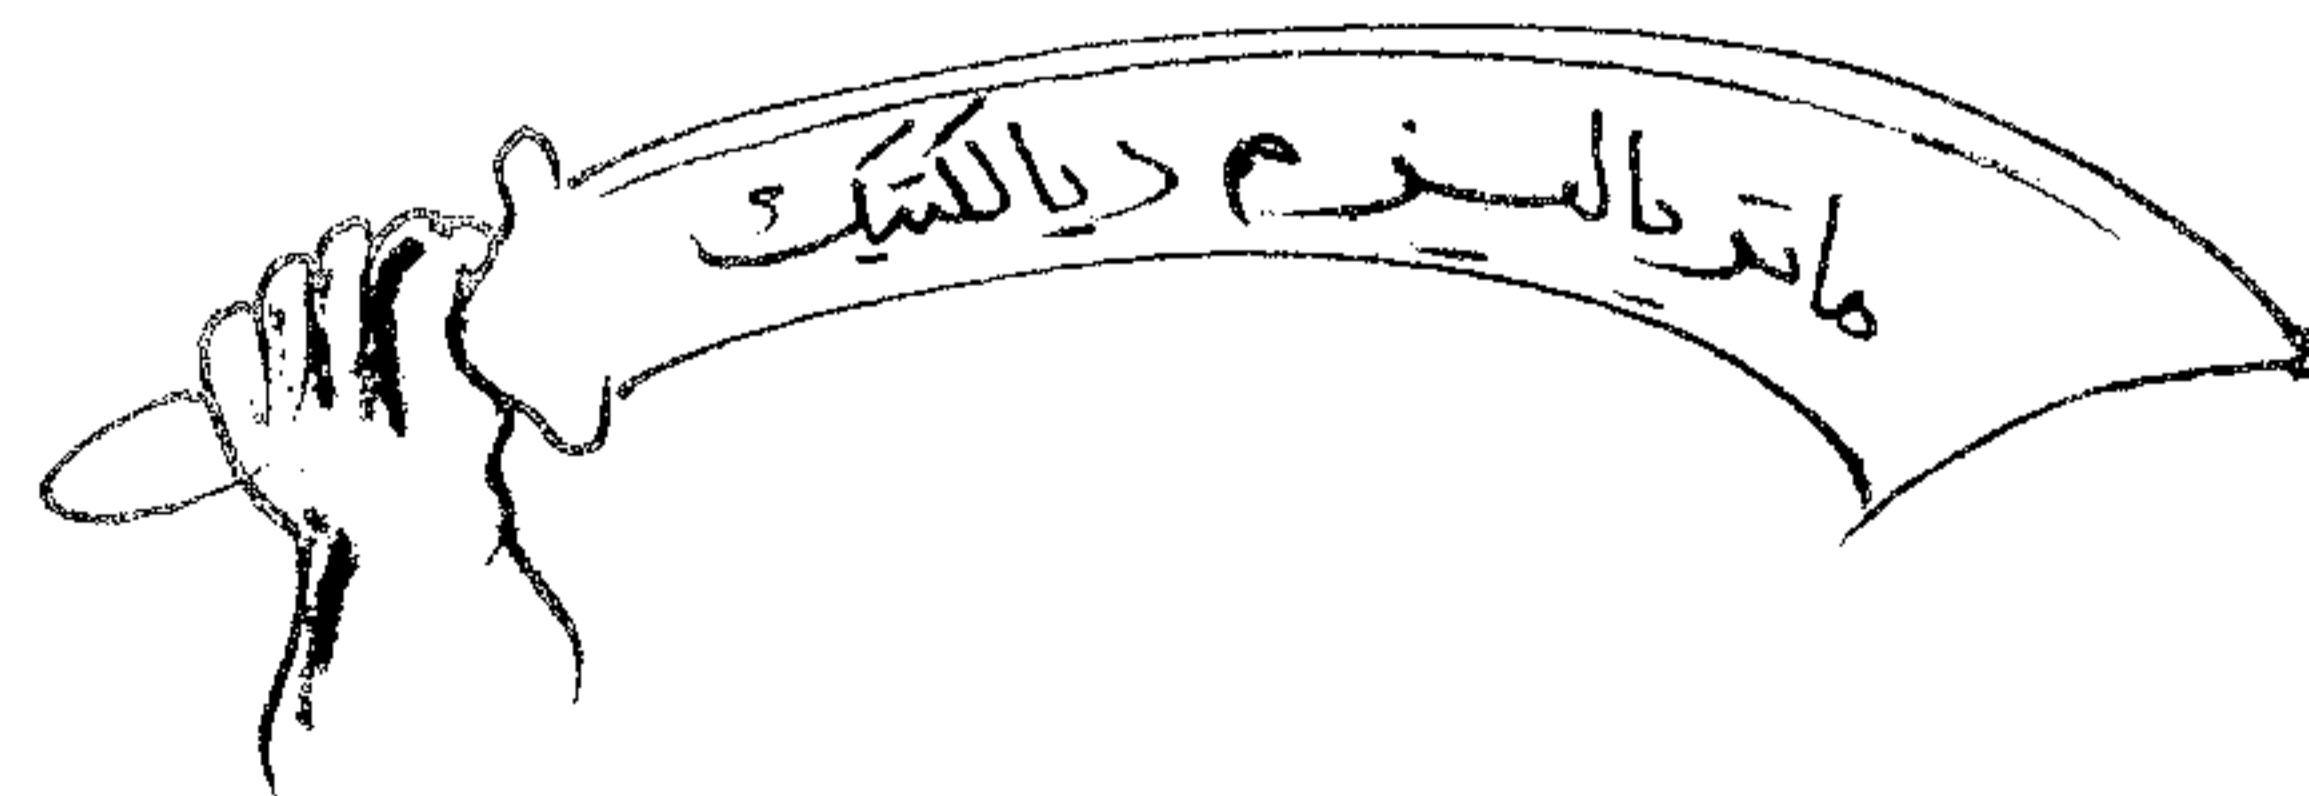 ماتریالیزم دیالکتیک